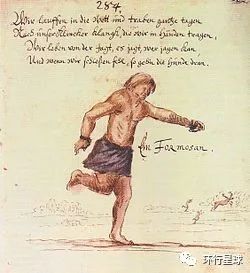 284.
Wir lauffen in die Wett und traben gantze tagen
Nach klangk, die wir in Händen tragen,
Wir leben von der Jagt, es jagt, wer jagen kan,
Und wenn wir schießen fehl, so gehn die Hunde dran.
Ein Formosan.
环行星球